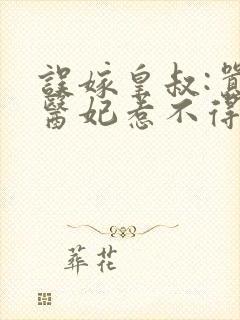 誤嫁皇叔:囂
醫妃惹不得
葬花